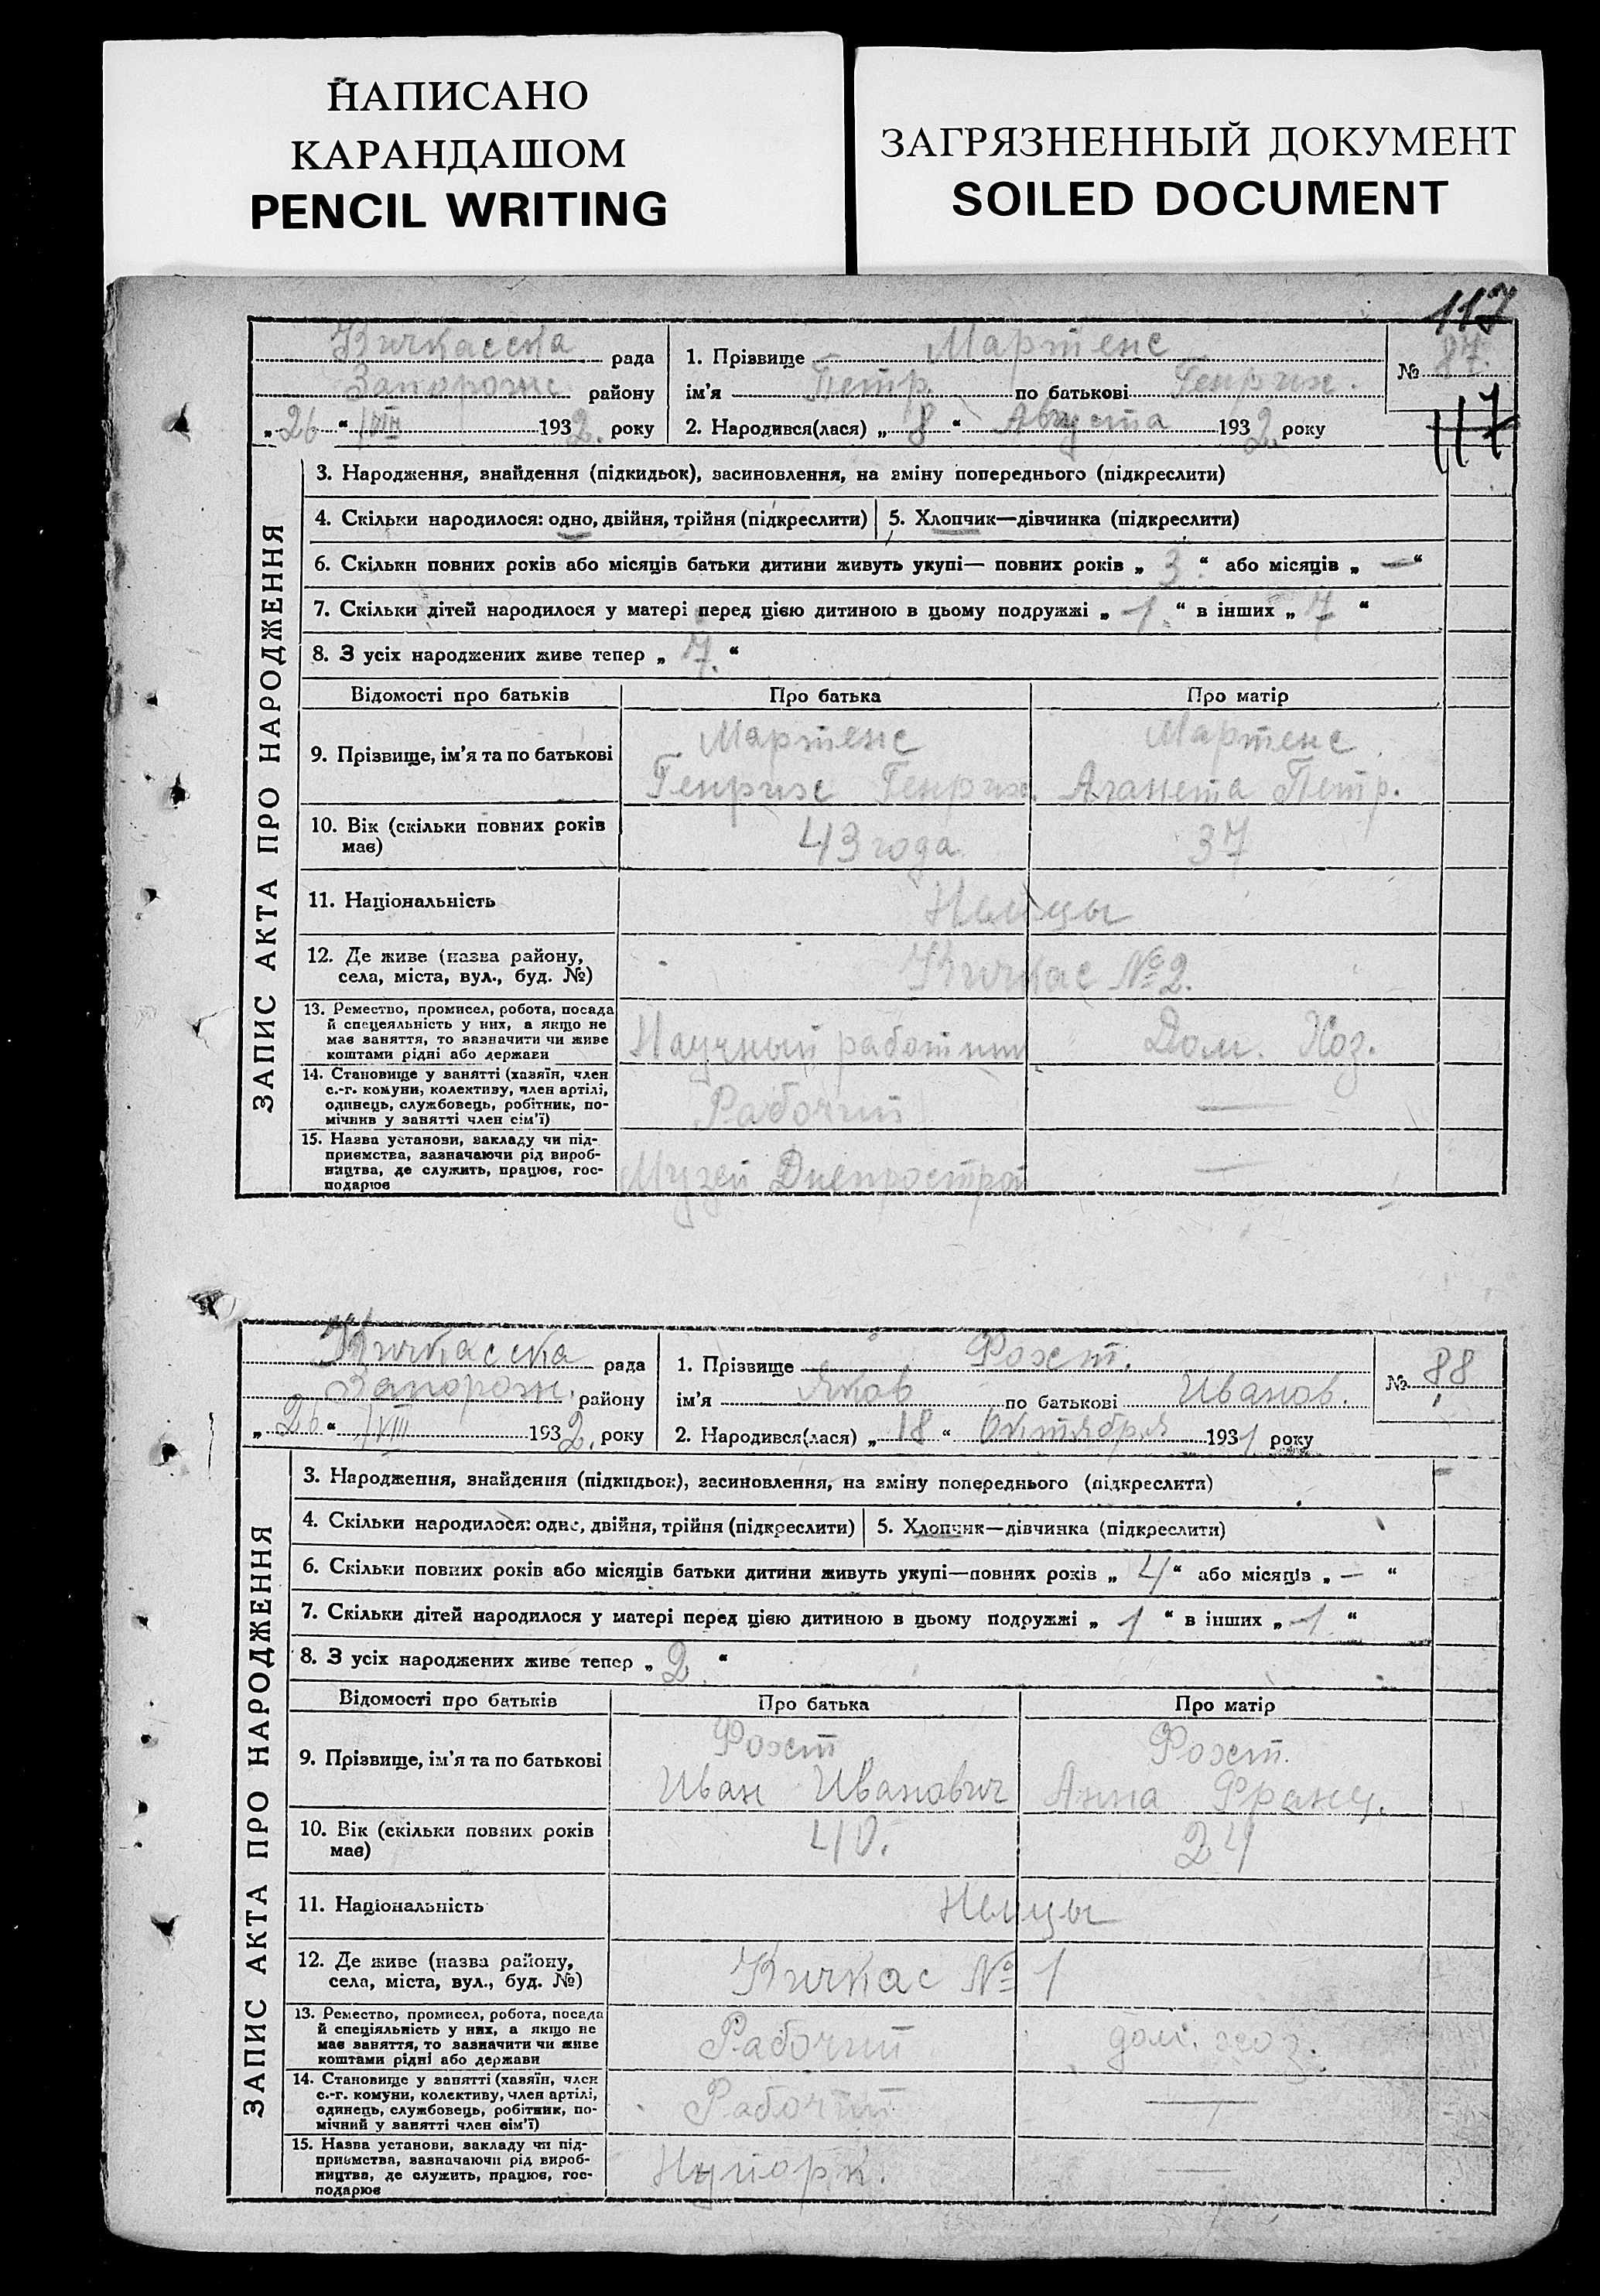 НАПИСАНО
КАРАНДАШОМ
PENCIL WRITING
ЗАГРЯЗНЕННЫЙ ДОКУМЕНТ
SOILED DOCUMENT
117
Кичкасска рада
Запорожс. району
„ 26 “ /VIII 1932. року
1. Прізвище Мартенс
ім'я Петр. по батькові Генрих.
2. Народився(лася) „ 8 “ Августа 1932. року
№ 87.
117
ЗАПИС АКТА ПРО НАРОДЖЕННЯ
3. Народження, знайдення (підкидьок), засиновлення, на зміну попереднього (підкреслити)
4. Скільки народилося: одно, двійня, трійня (підкреслити) 5. Хлопчик—дівчинка (підкреслити)
6. Скільки повних років або місяців батьки дитини живуть укупі— повних років „ 3. “ або місяців „ — “
7. Скільки дітей народилося у матері перед цією дитиною в цьому подружжі „ 1. “ в інших „ 7 “
8. З усіх народжених живе тепер „ 7. “
Відомості про батьків Про батька Про матір
9. Прізвище, ім'я та по батькові
Мартенс
Генрих Генрих.
Мартенс
Аганета Петр.
10. Вік (скільки повних років
має)
43 года 37
11. Національність Немцы
12. Де живе (назва району,
села, міста, вул., буд. №)
Кичкас № 2.
13. Ремество, промисел, робота, посада
й спецеяльність у них, а якщо не
має заняття, то зазначити чи живе
коштами рідні або держави
Научный работник Дом. Хоз.
14. Становище у занятті (хазяїн, член
с.-г. комуни, колективу, член артілі,
одинець, службовець, робітник, по-
мічнив у занятті член сім'ї)
Рабочий —
15. Назва установи, закладу чи під-
приємства, зазначаючи рід вироб-
ництва, де служить, працює, гос-
подарює
Музей Днепрострой —
Кичкасска рада
Запорож. району
„ 26 “ /VIII 1932. року
1. Прізвище Рохет.
ім'я Яков по батькові Иванов.
2. Народився(лася) „ 18 “ Октября 1931 року
№ 88
ЗАПИС АКТА ПРО НАРОДЖЕННЯ
3. Народження, знайдення (підкидьок), засиновлення, на зміну попереднього (підкреслити)
4. Скільки народилося: одне, двійня, трійня (підкреслити) 5. Хлопчик—дівчинка (підкреслити)
6. Скільки повних років або місяців батьки дитини живуть укупі—повних років „ 4 “ або місяців „ — “
7. Скільки дітей народилося у матері перед цією дитиною в цьому подружжі „ 1 “ в інших „ 1. “
8. З усіх народжених живе тепер „ 2. “
Відомості про батьків Про батька Про матір
9. Прізвище, ім'я та по батькові
Рохет
Иван Иванович
Рохет.
Анна Франц.
10. Вік (скільки повних років
має)
40. 24
11. Національність Немцы
12. Де живе (назва району,
села, міста, вул., буд. №)
Кичкас № 1
13. Ремество, промисел, робота, посада
й спеціяльність у них, а якщо не
має заняття, то зазначити чи живе
коштами рідні або держави
Рабочий дом. хоз.
14. Становище у занятті (хазяїн, член
с.-г. комуни, колективу, член артілі,
одинець, службовець, робітник, по-
мічний у занятті член сім'ї)
Рабочий —
15. Назва установи, закладу чи під-
приємства, зазначаючи рід вироб-
ництва, де служить, працює, гос-
подарює
—